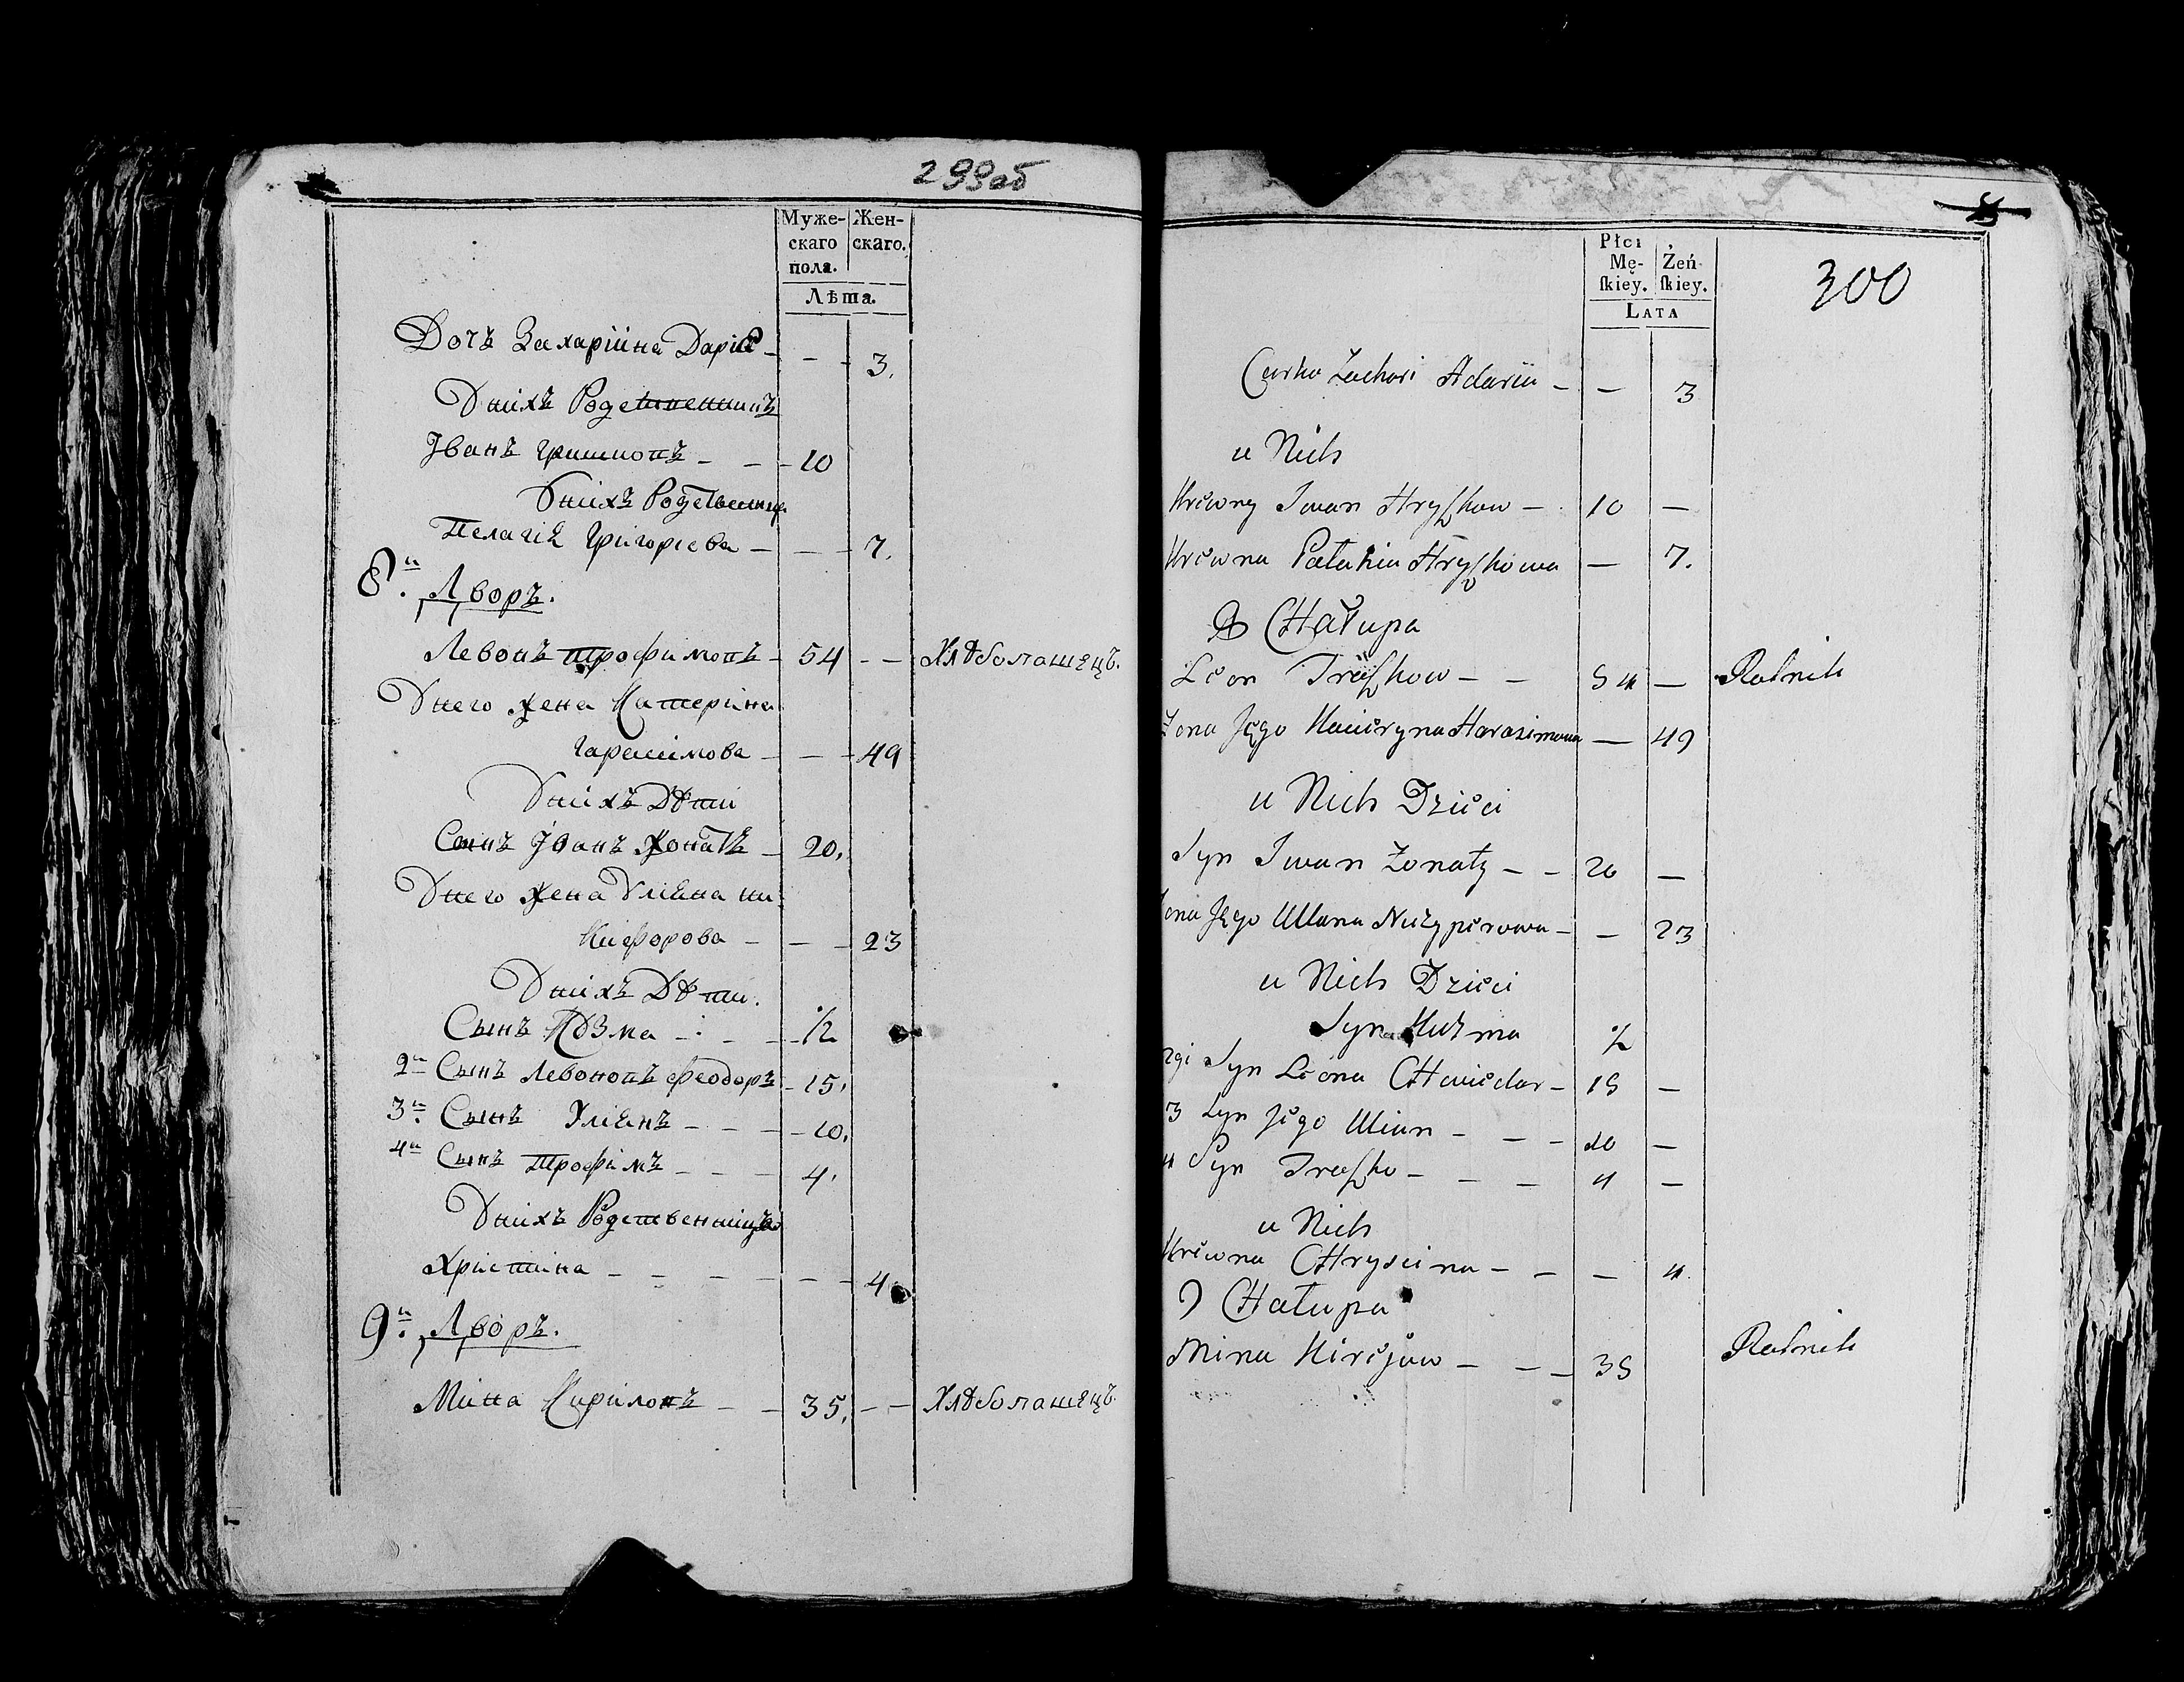 299об
Муже-
скаго
пола.
Жен-
скаго.
Лѣта.
Дочъ Захарійна Дарія - - - 3.
Унихъ Родственникъ
Іванъ Гришковъ - - - 10
Унихъ Родственница
Пелагія Григорiева - - - 7.
8й. Дворъ.
Левонъ Трофимовъ - 54 - - Хлѣбопашецъ.
Унего жена Катерiна
Гарасимова - - - 49
Унихъ Дѣти
Сынъ Іванъ Жонатъ - 20.
Унего жена Улiяна ни-
Кифорова - - - 23
Унихъ Дѣти.
Сынъ Козма - - - ½
2й Сынъ Левоновъ Феодоръ - 15.
3й Сынъ Улiянъ - - - 10.
4й Сынъ Трофiмъ - - - 4.
Унихъ Родственница
Христина - - - - - - 4
9й. Дворъ.
Мина Кириловъ - - 35. - - Хлѣбопашецъ.
300
Płci
Mę-
ſkiey.
Żeń-
ſkiey.
LATA
Curka Zachari Adaria - - 3
u Nich
Krewny Iwan Hryſzkow - 10 -
Krewna Pałahia Hryſzkowa - 7.
8 CHałupa
Leon Traſzkow - - 54 - Rolnik
Zona Jego Kacieryna Harasimowa - 49
u Nich Dzieci
Syn Iwan Zonaty - - 20 -
ona Jego Ullana Niczyperowa - - 23
u Nich Dzieci
Syn Kuzma ½
2gi Syn Leona CHwiedor - 15 -
3 Syn Jego Ulian - - - 10 -
4 Syn Traſzko - - - 4 -
u Nich
Krewna CHryscina - - - 4.
9 CHałupa
Mina Kirejow - - - 35 Rolnik